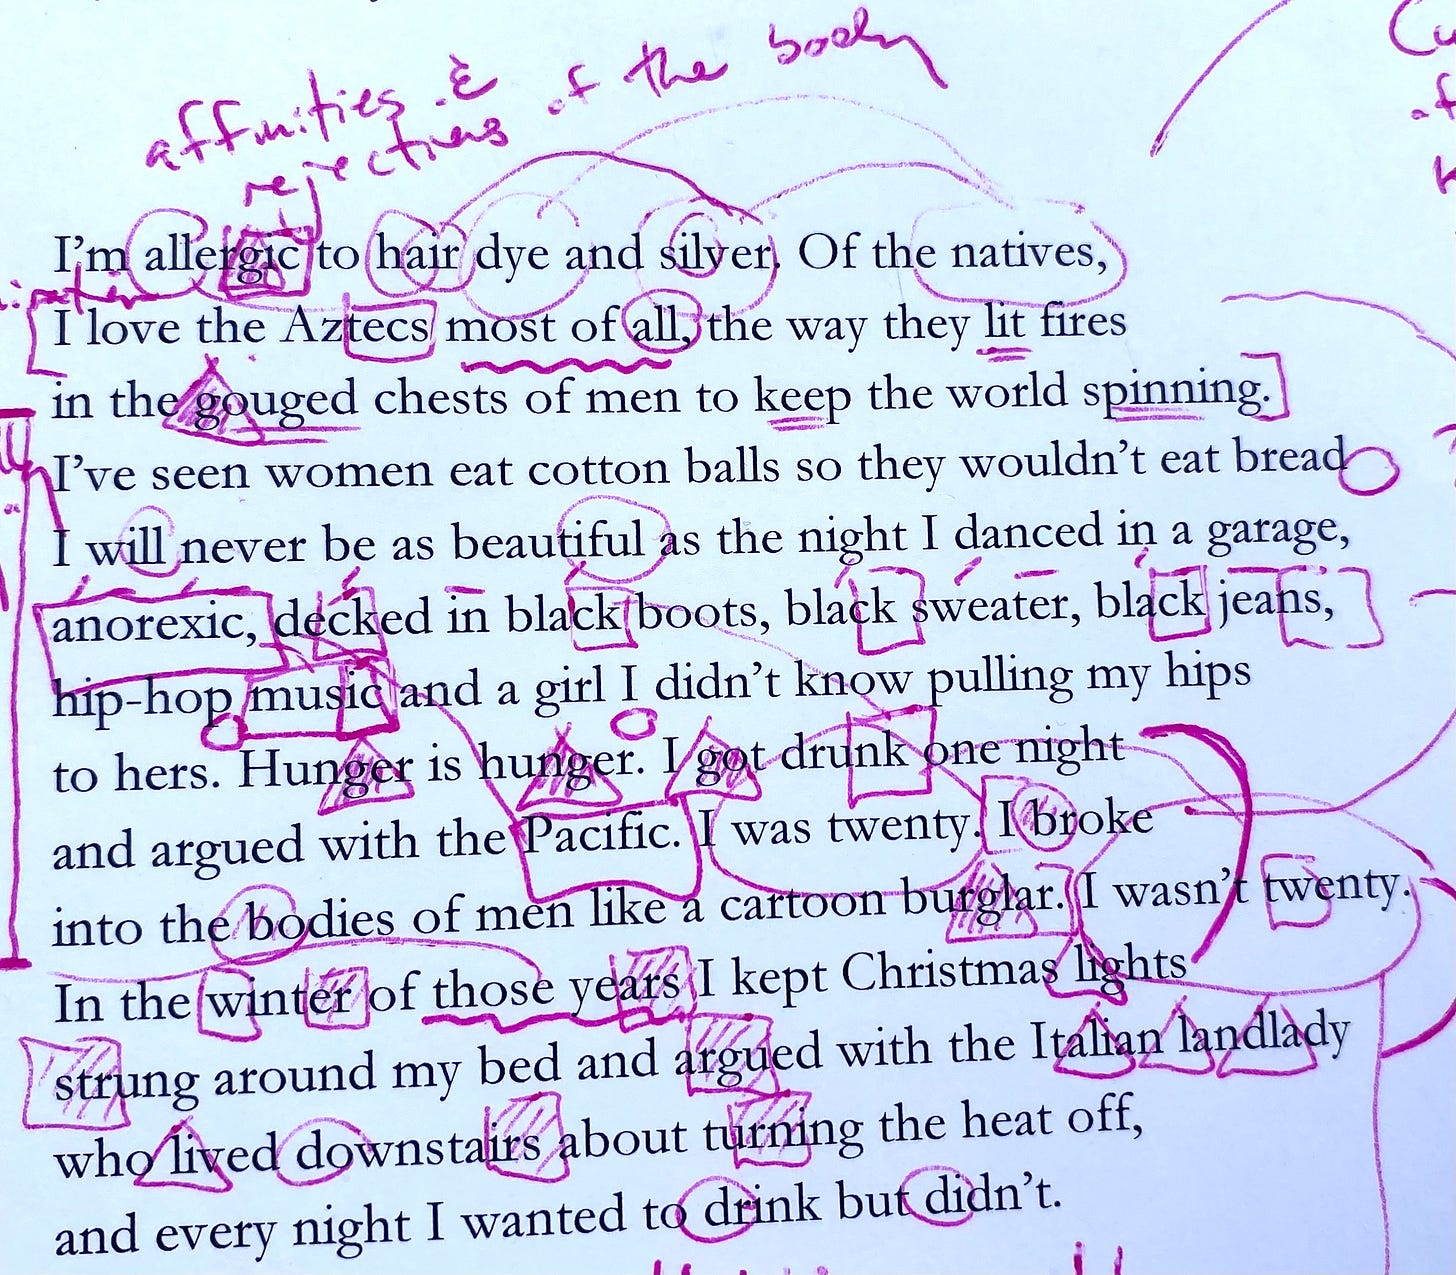 affinities &
rejections of the body
I'm allergic to hair dye and silver. Of the natives,
I love the Aztecs most of all, the way they lit fires
in the gouged chests of men to keep the world spinning.
I've seen women eat cotton balls so they wouldn't eat bread
I will never be as beautiful as the night I danced in a garage,
anorexic, decked in black boots, black sweater, black jeans,
hip-hop music and a girl I didn't know pulling my hips
to hers. Hunger is hunger. I got drunk one night
and argued with the Pacific. I was twenty. I broke
into the bodies of men like a cartoon burglar. I wasn't twenty.
In the winter of those years I kept Christmas lights
strung around my bed and argued with the Italian landlady
who lived downstairs about turning the heat off,
and every night I wanted to drink but didn't.